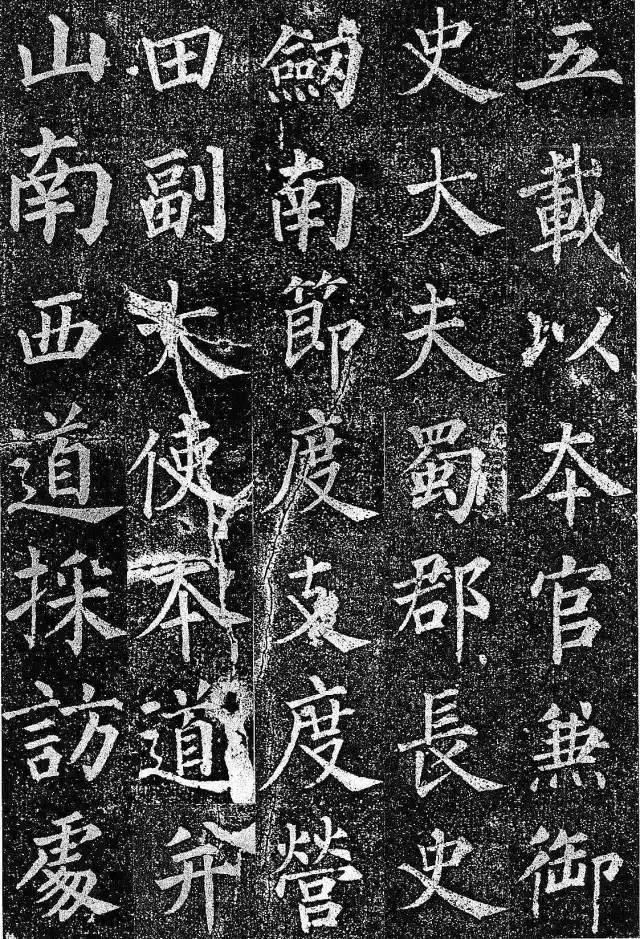 五載以本官兼御
史大夫蜀郡長史
劒南節度支度營
田副大使本道并
山南西道採訪處